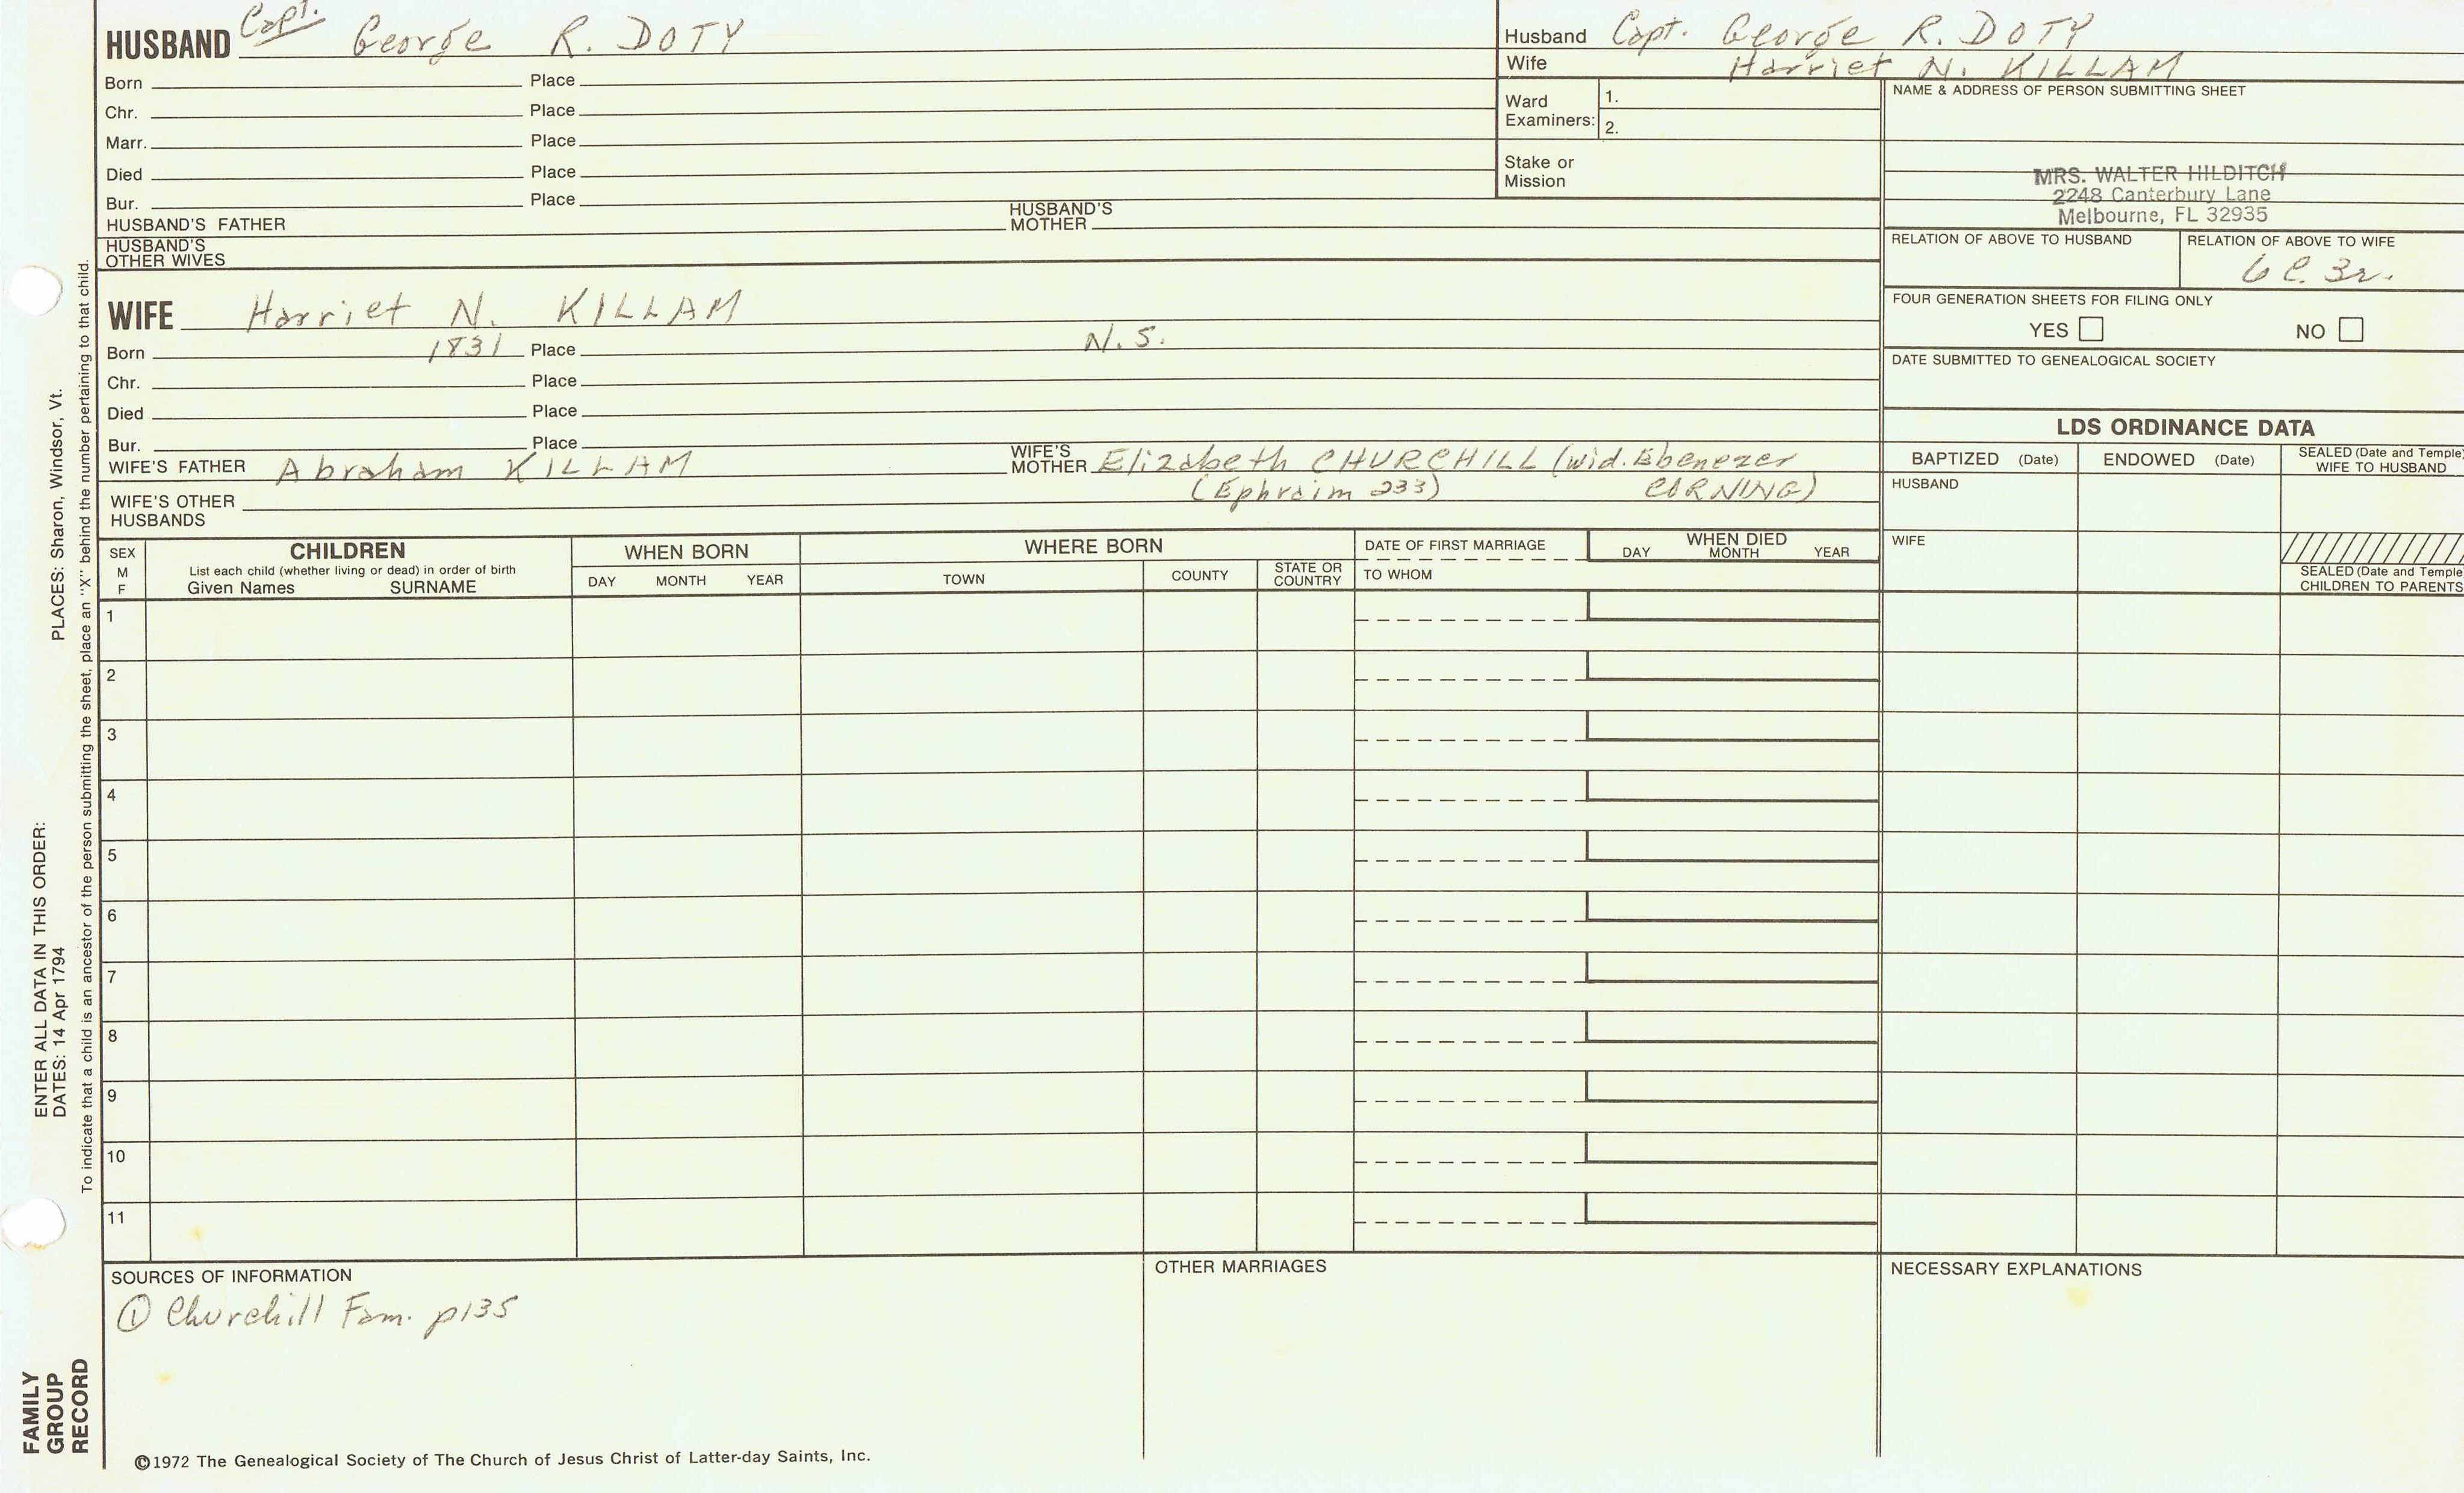 HUSBAND Capt. George R. DOTY
Born Place
Chr. Place
Marr. Place
Died Place
Bur. Place
HUSBAND'S FATHER HUSBAND'S MOTHER
HUSBAND'S OTHER WIVES
Husband Capt. George R. DOTY
Wife Harriet N. KILLAM
Ward Examiners: 1.
2.
Stake or Mission
NAME & ADDRESS OF PERSON SUBMITTING SHEET
MRS. WALTER HILDITCH
2248 Canterbury Lane
Melbourne, FL 32935
RELATION OF ABOVE TO HUSBAND
RELATION OF ABOVE TO WIFE
6 C. 3r.
FOUR GENERATION SHEETS FOR FILING ONLY
YES NO
DATE SUBMITTED TO GENEALOGICAL SOCIETY
WIFE Harriet N. KILLAM
Born 1831 Place N. S.
Chr. Place
Died Place
Bur. Place
WIFE'S FATHER Abraham KILLAM WIFE'S MOTHER Elizabeth CHURCHILL (wid. Ebenezer
(Ephraim 233) CORNING)
WIFE'S OTHER HUSBANDS
LDS ORDINANCE DATA
BAPTIZED (Date) ENDOWED (Date) SEALED (Date and Temple) WIFE TO HUSBAND
HUSBAND
WIFE
SEALED (Date and Temple
CHILDREN TO PARENTS
SEX M F
CHILDREN
List each child (whether living or dead) in order of birth
Given Names SURNAME
WHEN BORN
DAY MONTH YEAR
WHERE BORN
TOWN COUNTY STATE OR COUNTRY
DATE OF FIRST MARRIAGE
TO WHOM
WHEN DIED
DAY MONTH YEAR
1
2
3
4
5
6
7
8
9
10
11
SOURCES OF INFORMATION
① Churchill Fam. p135
OTHER MARRIAGES
NECESSARY EXPLANATIONS
©1972 The Genealogical Society of The Church of Jesus Christ of Latter-day Saints, Inc.
FAMILY GROUP RECORD
ENTER ALL DATA IN THIS ORDER:
DATES: 14 Apr 1794 PLACES: Sharon, Windsor, Vt.
To indicate that a child is an ancestor of the person submitting the sheet, place an "X" behind the number pertaining to that child.